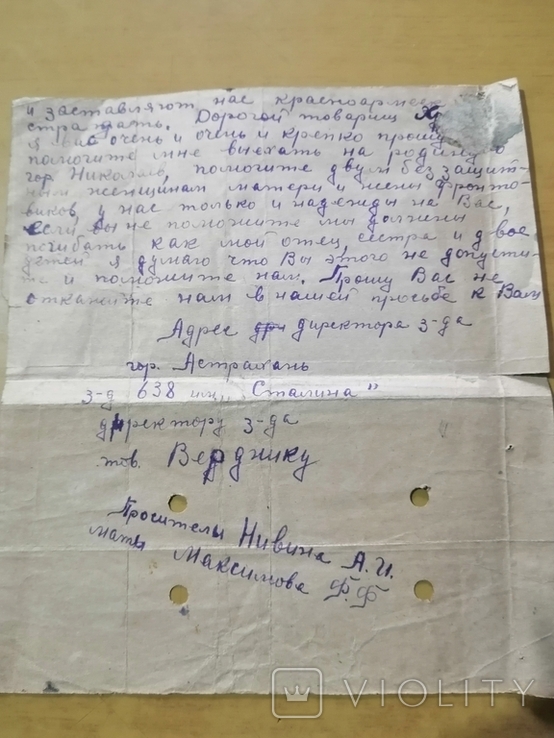 и заставляют нас красноармей
страдать. Дорогой товарищ
я вас очень и очень и крепко прошу
помогите мне выехать на родину в
гор Николаев, помогите двум беззащит-
ным женщинам матери и жены фронто-
виков, у нас только и надежды на Вас,
если вы не поможите мы должены
погибать как мой отец, сестра и двое
детей я думаю что Вы этого не допусти-
те и поможите нам. Прошу Вас не
откажите нам в нашей просьбе к Вам
Адрес директора з-да
гор. Астрахань
з-д 638 им „Сталина"
директору з-да
тов. Верднику
Просители Нивина А.И.
мать Максимова Ф.Ф
VIOLITY